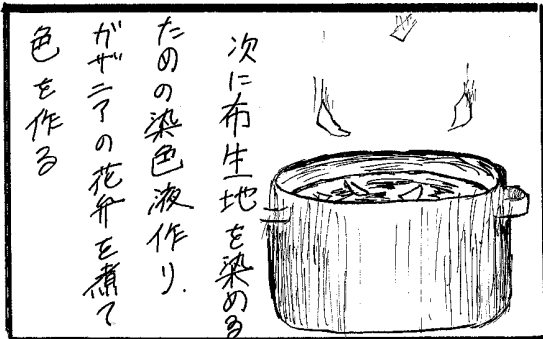 次に布生地を染める
ための染色液作り.
ガザニアの花弁を煮て
色を作る